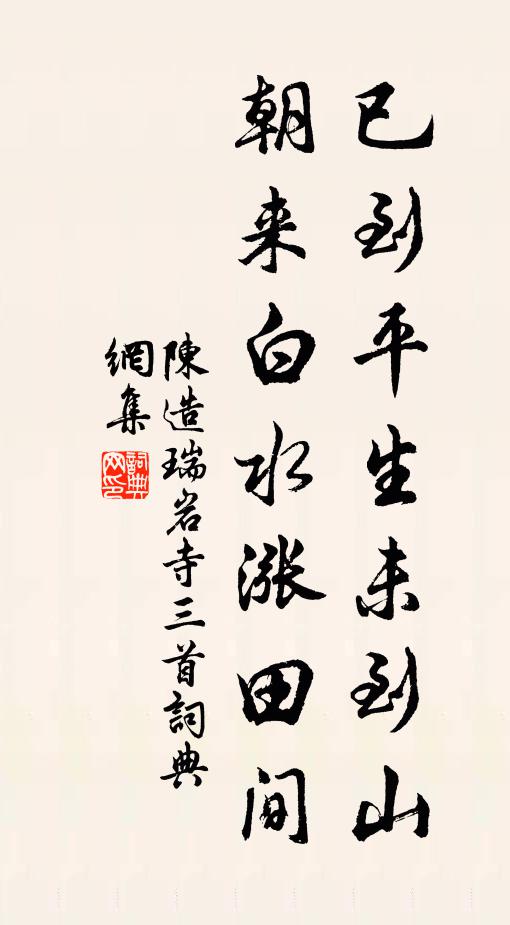 已到平生未到山
朝来白水涨田间
陳造瑞岩寺三首詞典
網集
詞典
网印